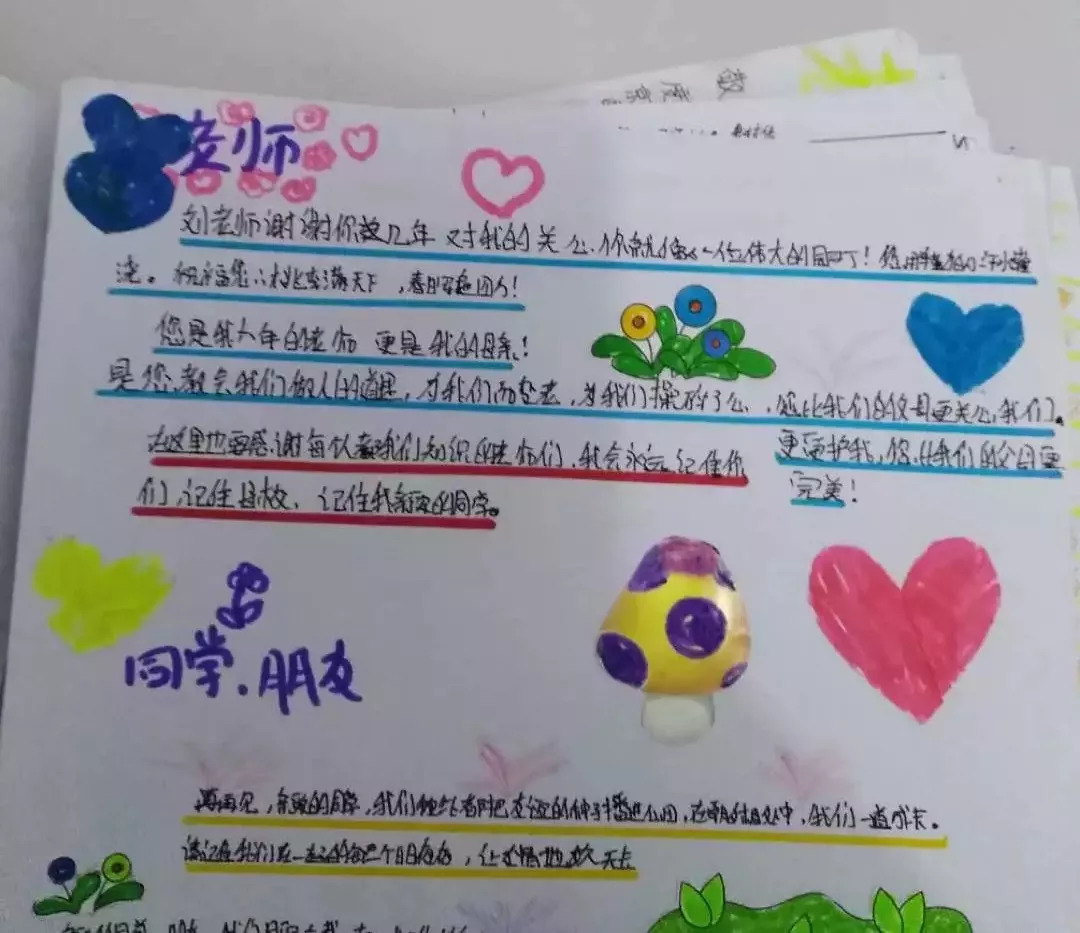 老师
刘老师谢谢你这几年对我的关心,你就像一位伟大的园丁!您用辛勤的汗水灌
浇。祝福您桃李满天下,春晖遍四方!
您是我六年的老师 更是我的母亲!
是您,教会我们做人的道理,为我们而 ,为我们操碎了心,您比我们的父母更关心我们。
更爱护我,您比我们的父母更
完美!
在这里也要感谢每个教我们知识的老师们,我会永远记住你
们,记住母校、记住我亲爱的同学。
同学、朋友
再见,亲爱的同学,我们 把友谊的种子播进心田,在 相处中,我们一道成长。
请记住我们在一起的每一个日日夜夜,让 地